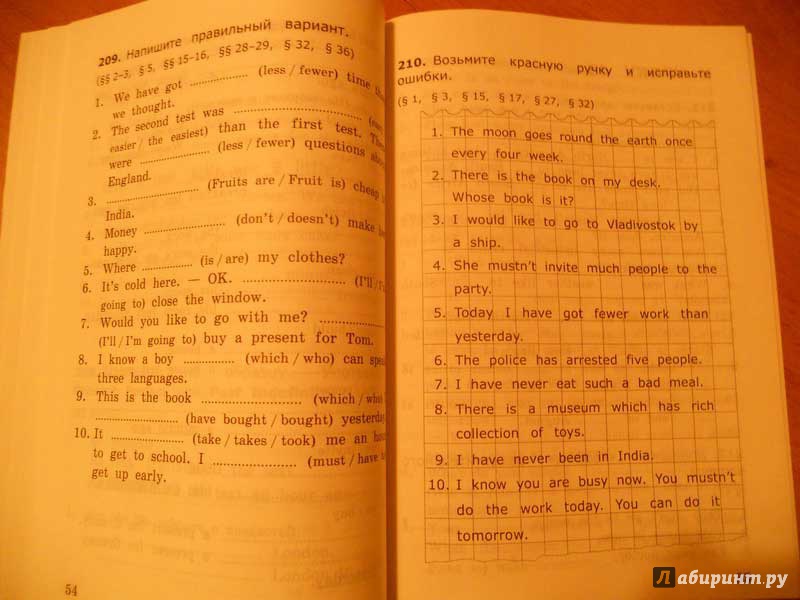 209. Напишите правильный вариант.
(§§ 2–3, § 5, §§ 15–16, §§ 28–29, § 32, § 36)
1. We have got .................. (less / fewer) time
we thought.
2. The second test was ..................
easier / the easiest) than the first test.
were .................. (less / fewer) questions
England.
3. .................. (Fruits are / Fruit is)
India.
4. Money .................. (don't / doesn't) make
happy.
5. Where .................. (is / are) my clothes?
6. It's cold here. — OK. .................. (I'll /
going to) close the window.
7. Would you like to go with me? ..................
(I'll / I'm going to) buy a present for Tom.
8. I know a boy .................. (which / who) can
three languages.
9. This is the book .................. (which / who)
.................. (have bought / bought)
10. It .................. (take / takes / took) me an
to get to school. I .................. (must / have
get up early.
54
210. Возьмите красную ручку и исправьте
ошибки.
(§ 1, § 3, § 15, § 17, § 27, § 32)
1. The moon goes round the earth once
every four week.
2. There is the book on my desk.
Whose book is it?
3. I would like to go to Vladivostok by
a ship.
4. She mustn't invite much people to the
party.
5. Today I have got fewer work than
yesterday.
6. The police has arrested five people.
7. I have never eat such a bad meal.
8. There is a museum which has rich
collection of toys.
9. I have never been in India.
10. I know you are busy now. You mustn't
do the work today. You can do it
tomorrow.
Лабиринт.ру